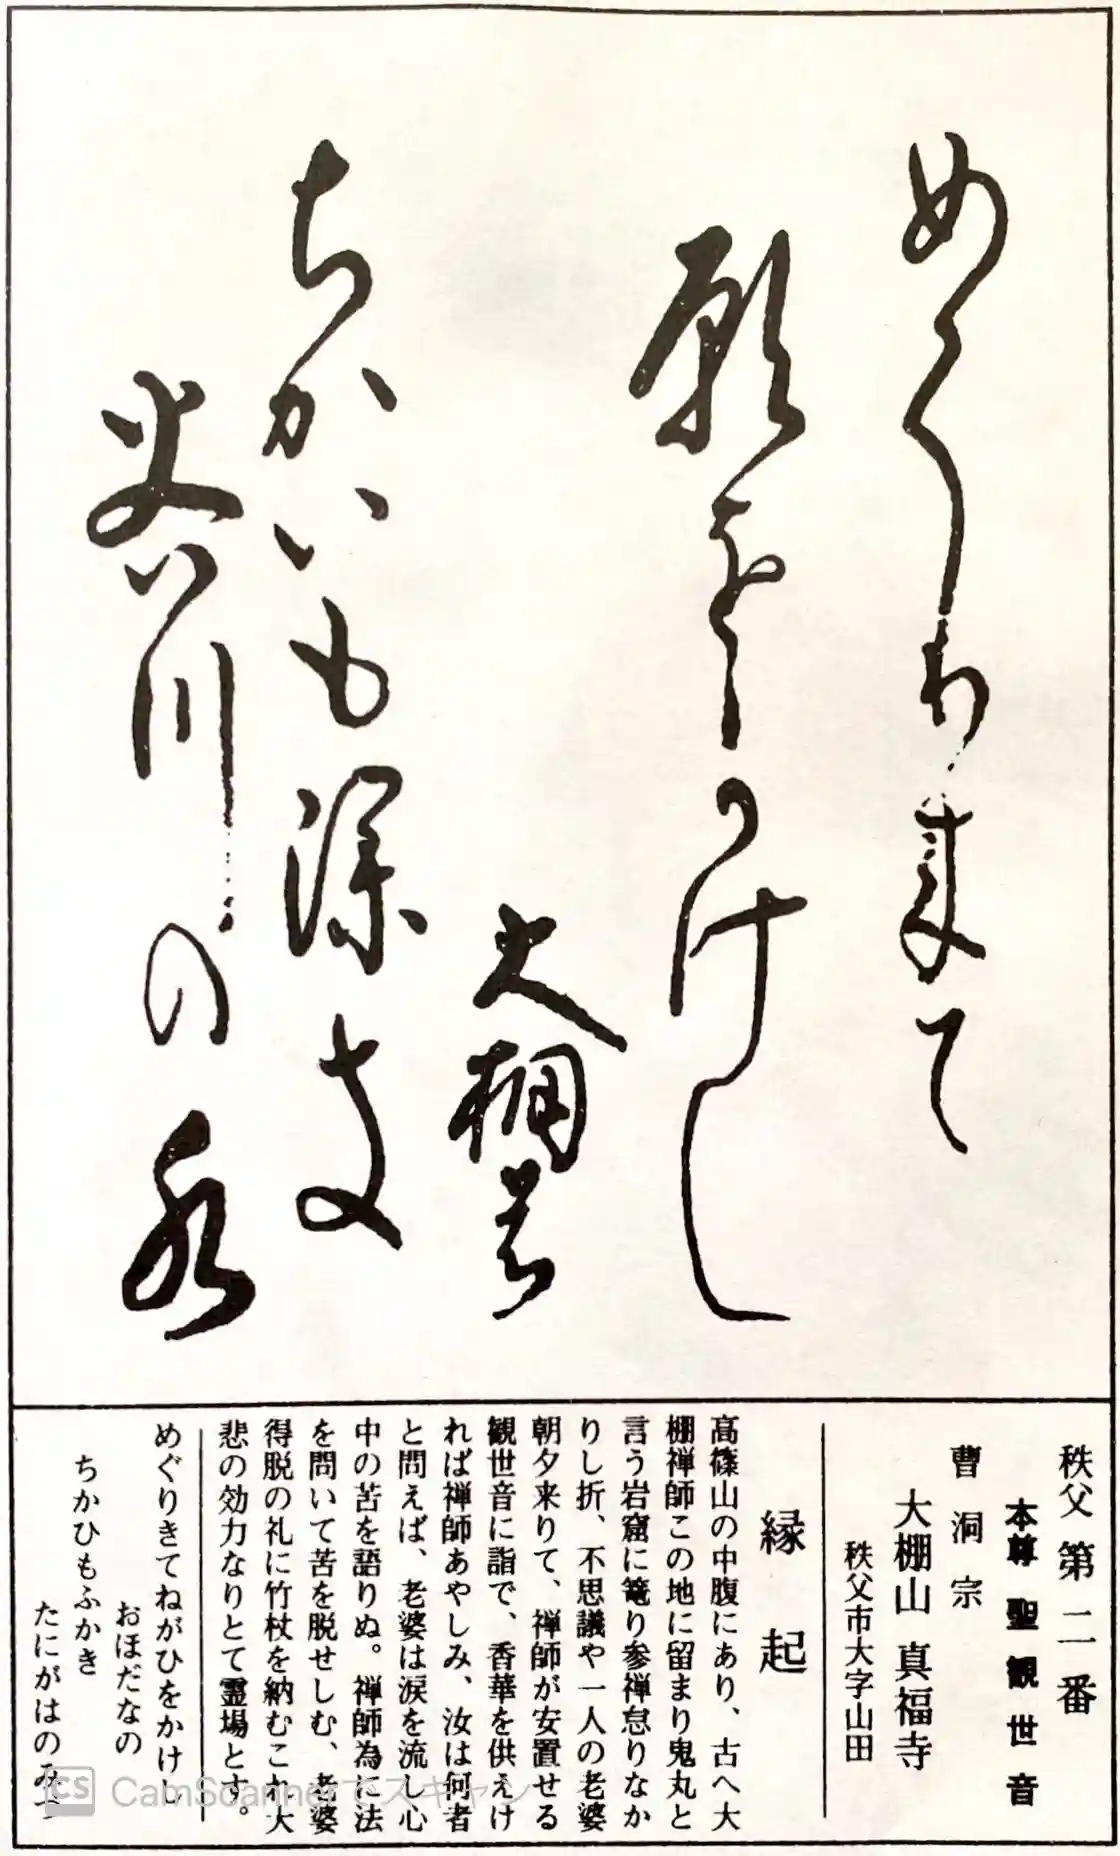 めくり来て
願をかけし
大棚の
ちかいも深き
谷川の水
秩父 第二番
本尊 聖観世音
曹洞宗
大棚山 真福寺
秩父市大字山田
縁起
高篠山の中腹にあり、古へ大
棚禅師この地に留まり鬼丸と
言う岩窟に篭り参禅怠りなか
りし折、不思議や一人の老婆
朝夕来りて、禅師が安置せる
観世音に詣で、香華を供えけ
れば禅師あやしみ、汝は何者
と問えば、老婆は涙を流し心
中の苦を語りぬ。禅師為に法
を問いて苦を脱せしむ、老婆
得脱の礼に竹杖を納むこれ大
悲の効力なりとて霊場とす。
めぐりきてねがひをかけし
おほだなの
ちかひもふかき
たにがはのみづ
CS CamScannerでスキャン